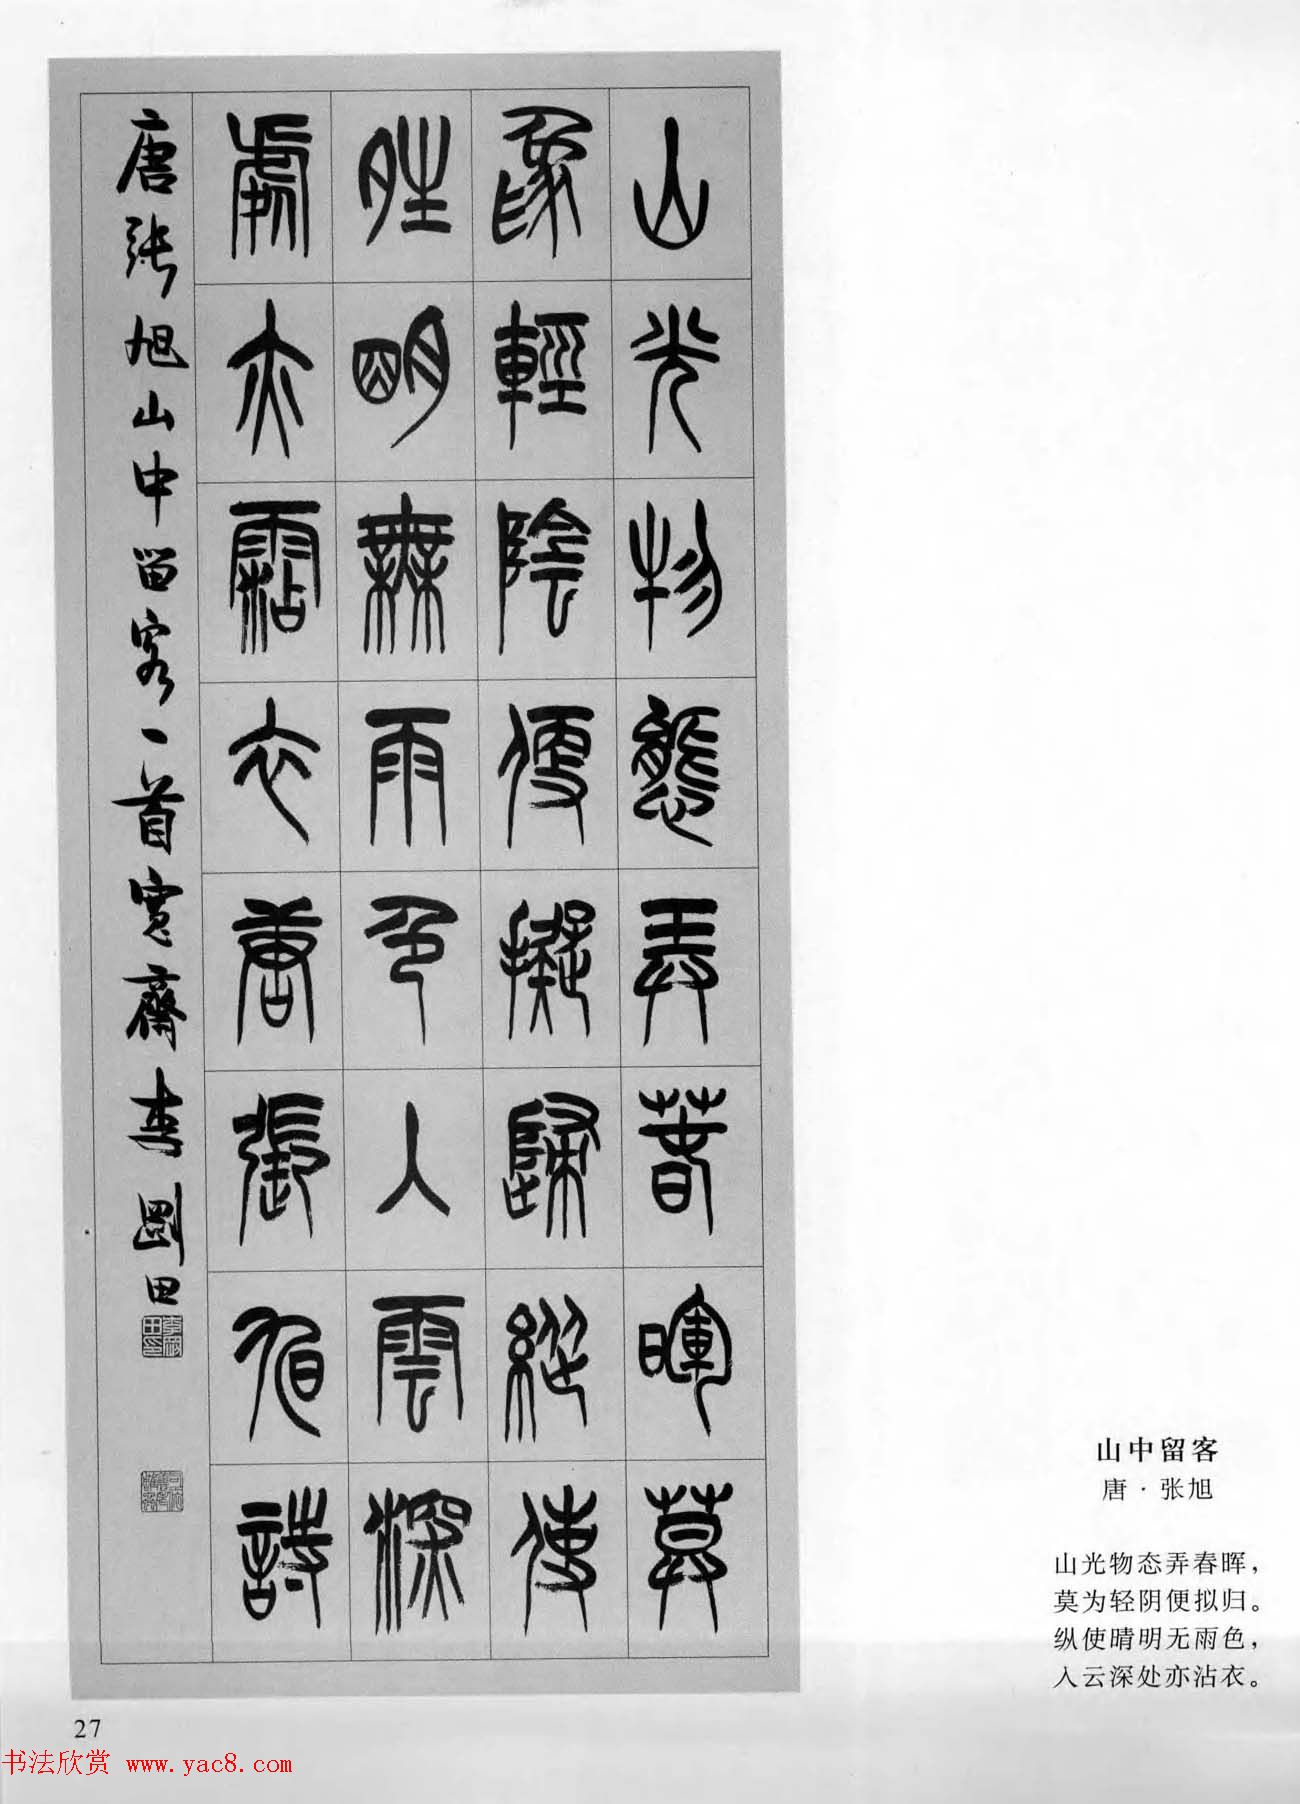 山光物態弄春暉莫
為輕陰便擬歸縱使
晴明無雨色入雲深
處亦霑衣唐張旭詩
唐張旭山中留客一首寬齋李剛田
山中留客
唐·张旭
山光物态弄春晖，
莫为轻阴便拟归。
纵使晴明无雨色，
入云深处亦沾衣。
27
书法欣赏 www.yac8.com